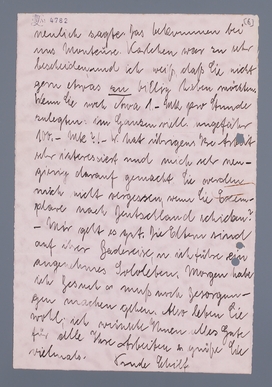 4782
(6)
neulich sagte, das bekommen bei
uns Monteure. Karlchen war zu sehr
bescheiden und ich weiß, daß Sie nicht
gern etwas zu billig haben möchten.
Wenn Sie noch etwa 1.- Mk pro Stunde
zulegten: im Ganzen viell. ungefähr
100.- Mk?! - W. hat übrigens Ihre Arbeit
sehr interessiert und mich sehr neu-
gierig darauf gemacht. Sie werden
mich nicht vergessen, wenn Sie Exem-
plare nach Deutschland schicken? -
- Mir geht es gut. Die Eltern sind
auf einer Badereise, u. ich führe ein
angenehmes Sololeben. Morgen habe
ich u. muß noch Besorgun-
gen machen gehen. Also leben Sie
wohl, ich wünsche Ihnen alles Gute
für alle Ihre Arbeiten u. grüße Sie
vielmals.